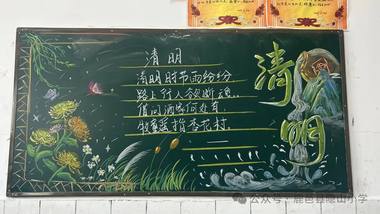 清明
清明时节雨纷纷
路上行人欲断魂.
借问酒家何处有
牧童遥指杏花村.
清明
公众号：鹿邑县隐山小学